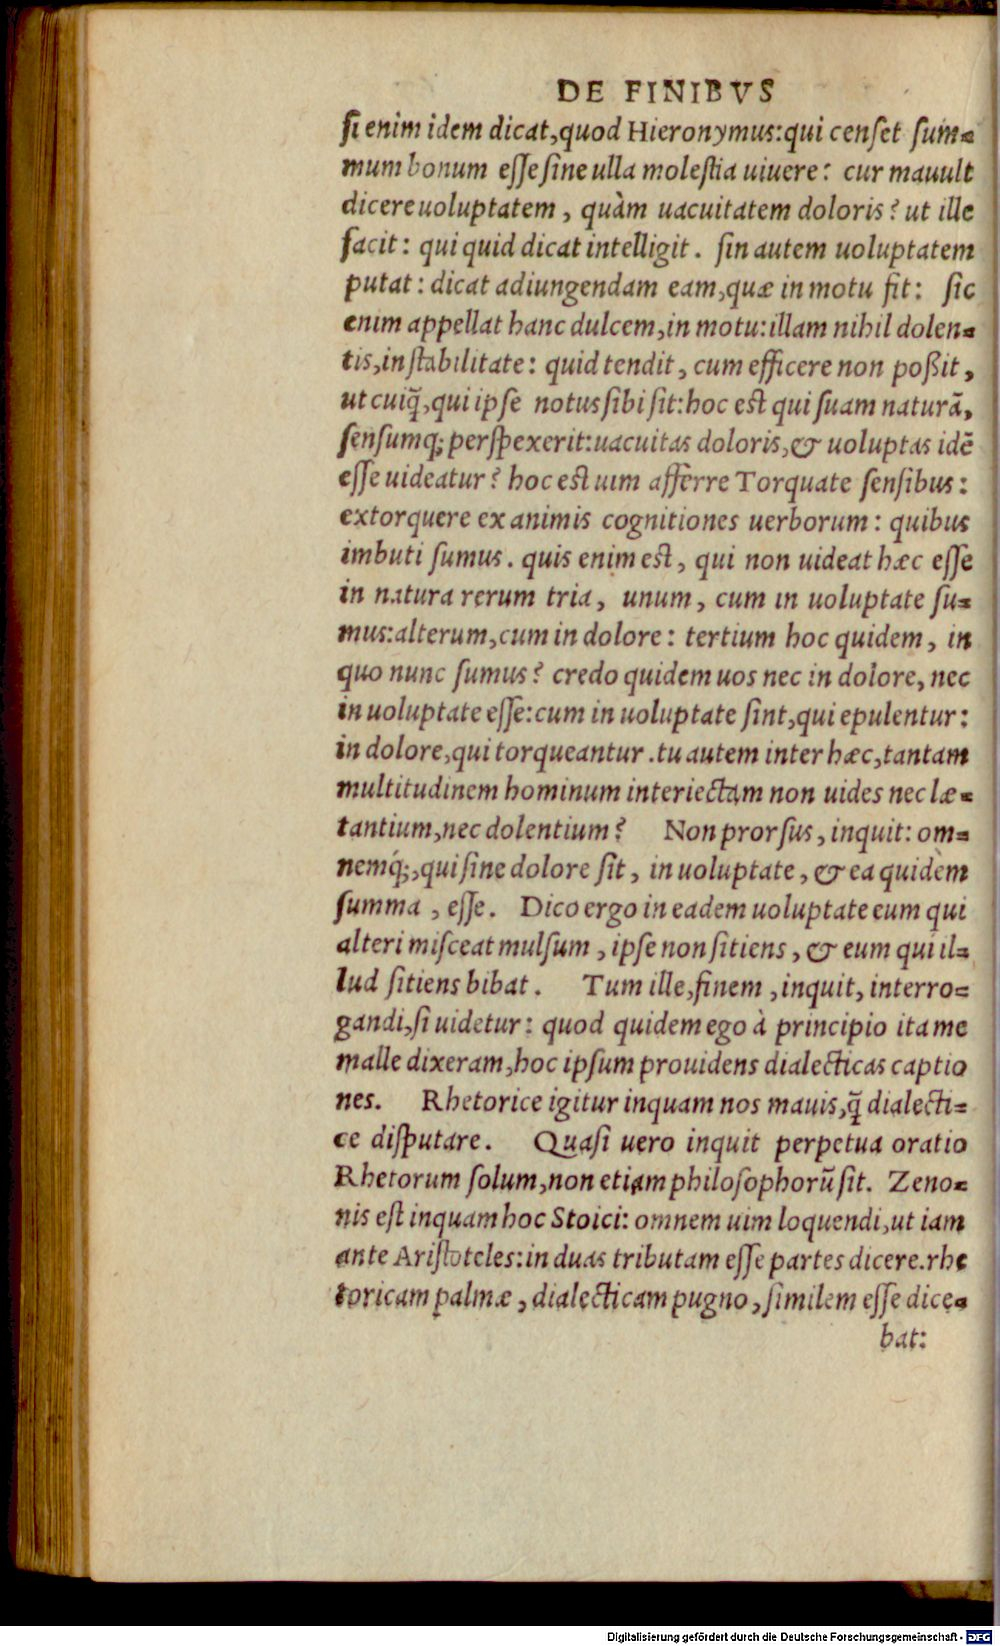 DE FINIBVS
ſi enim idem dicat,quod Hieronymus:qui cenſet ſum-
mum bonum eſſe ſine ulla moleſtia uiuere: cur mauult
dicere uoluptatem, quàm uacuitatem doloris? ut ille
facit: qui quid dicat intelligit. ſin autem uoluptatem
putat: dicat adiungendam eam,quæ in motu ſit: ſic
enim appellat hanc dulcem,in motu:illam nihil dolen-
tis,in ſtabilitate: quid tendit, cum efficere non poßit,
ut cuiq̃,qui ipſe notus ſibi ſit:hoc eſt qui ſuam naturã,
ſenſumq; perſpexerit:uacuitas doloris,& uoluptas idē
eſſe uideatur? hoc eſt uim afferre Torquate ſenſibus:
extorquere ex animis cognitiones uerborum: quibus
imbuti ſumus. quis enim est, qui non uideat hæc eſſe
in natura rerum tria, unum, cum in uoluptate ſu-
mus:alterum,cum in dolore: tertium hoc quidem, in
quo nunc ſumus? credo quidem uos nec in dolore, nec
in uoluptate eſſe:cum in uoluptate ſint,qui epulentur:
in dolore,qui torqueantur.tu autem inter hæc,tantam
multitudinem hominum interiectam non uides nec læ-
tantium,nec dolentium? Non prorſus, inquit: om-
nemq́;,qui ſine dolore ſit, in uoluptate, & ea quidèm
ſumma, eſſe. Dico ergo in eadem uoluptate eum qui
alteri miſceat mulſum, ipſe non ſitiens, & eum qui il-
lud ſitiens bibat. Tum ille,finem, inquit, interro-
gandi,ſi uidetur: quod quidem ego à principio ita me
malle dixeram,hoc ipſum prouidens dialecticas captio
nes. Rhetorice igitur inquam nos mauis,q̃ dialecti-
ce diſputare. Quaſi uero inquit perpetua oratio
Rhetorum ſolum,non etiam philoſophorũ ſit. Zeno-
nis eſt inquam hoc Stoici: omnem uim loquendi,ut iam
ante Ariſtoteles:in duas tributam eſſe partes dicere.rhe
toricam palmæ, dialecticam pugno, ſimilem eſſe dice-
bat:
Digitalisierung gefördert durch die Deutsche Forschungsgemeinschaft - DFG